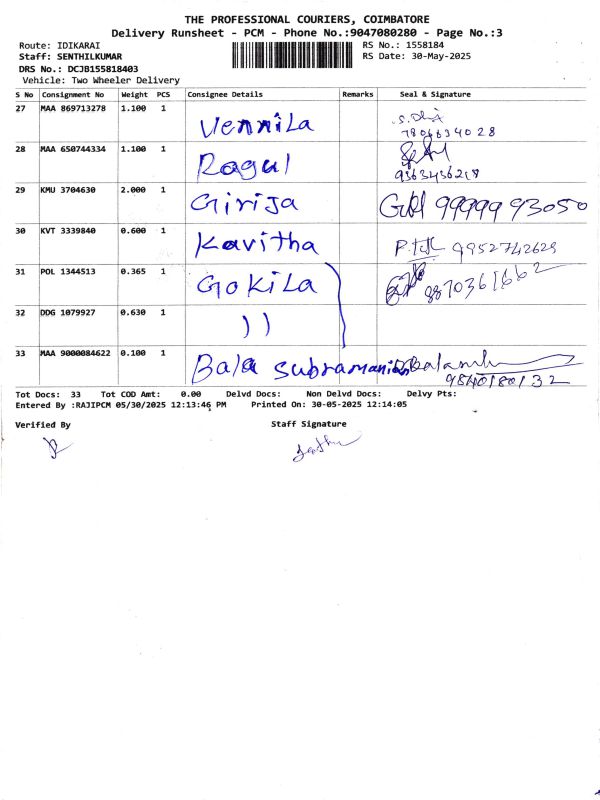 THE PROFESSIONAL COURIERS, COIMBATORE
Delivery Runsheet - PCM - Phone No.:9047080280 - Page No.:3
Route: IDIKARAI
RS No.: 1558184
Staff: SENTHILKUMAR
RS Date: 30-May-2025
DRS No.: DCJB155818403
Vehicle: Two Wheeler Delivery
S No Consignment No Weight PCS Consignee Details Remarks Seal & Signature
27 MAA 869713278 1.100 1 Vennila
28 MAA 650744334 1.100 1 Ragul
9363456218
29 KMU 3704630 2.000 1 Girija 99999 93050
30 KVT 3339840 0.600 1 Kavitha 9952742629
31 POL 1344513 0.365 1 Gokila 8870361662
32 DDG 1079927 0.630 1 ))
33 MAA 9000084622 0.100 1 Bala subramanian
9840180132
Tot Docs: 33 Tot COD Amt: 0.00 Delvd Docs: Non Delvd Docs: Delvy Pts:
Entered By :RAJIPCM 05/30/2025 12:13:46 PM Printed On: 30-05-2025 12:14:05
Verified By Staff Signature